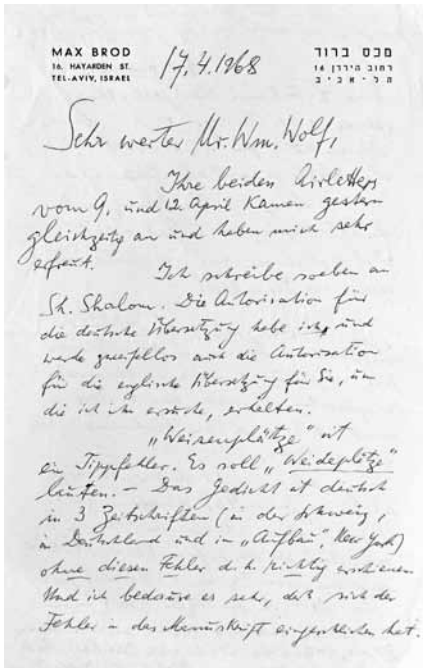 MAX BROD
16. HAYARDEN ST.
TEL-AVIV, ISRAEL
17.4.1968
מכס ברוד
רחוב הירדן 16
תל-אביב
Sehr werter Mr. Wm. Wolf,
Ihre beiden Airletters
vom 9. und 12. April kamen gestern
gleichzeitig an und haben mich sehr
erfreut.
Ich schreibe soeben an
Sh. Shalom. Die Autorisation für
die deutsche Übersetzung habe ich, und
werde zweifellos auch die Autorisation
für die englische Übersetzung für Sie, um
die ich ihn ersuche, erhalten.
„Weisenplätze" ist
ein Tippfehler. Es soll „Weideplätze"
lauten. – Das Gedicht ist deutsch
in 3 Zeitschriften (in der Schweiz,
in Deutschland und in „Aufbau", New York)
ohne diesen Fehler d.h. richtig erschienen
Und ich bedaure es sehr, daß sich der
Fehler in das Manuskript eingeschlichen hat.